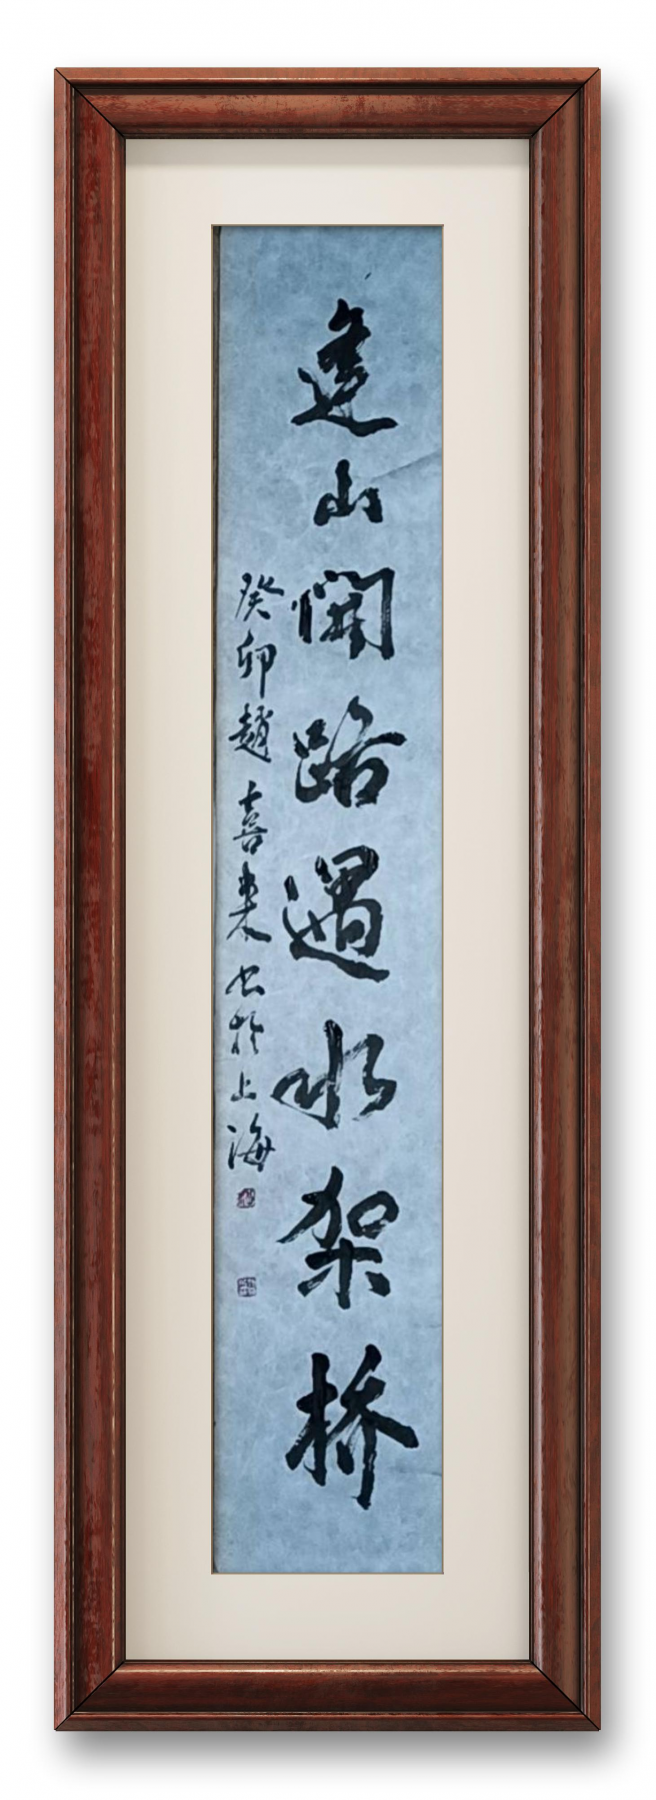 逢山開路遇水架桥
癸卯趙喜来书於上海